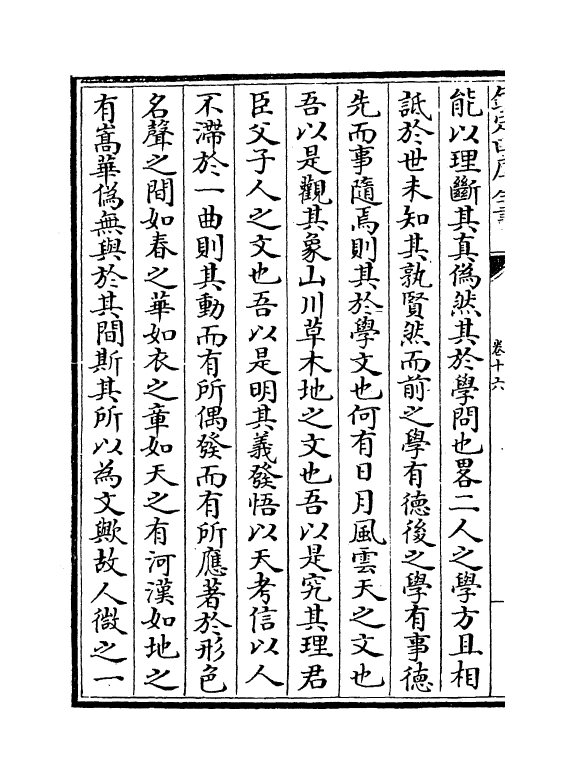 欽定四庫全書
卷十六
能以理斷其真偽然其於學問也畧二人之學方且相
詆於世未知其孰賢然而前之學有德後之學有事德
先而事隨焉則其於學文也何有日月風雲天之文也
吾以是觀其象山川草木地之文也吾以是究其理君
臣父子人之文也吾以是明其義發悟以天考信以人
不滯於一曲則其動而有所偶發而有所應著於形色
名聲之間如春之華如衣之章如天之有河漢如地之
有嵩華偽無與於其間斯其所以為文歟故人微之一